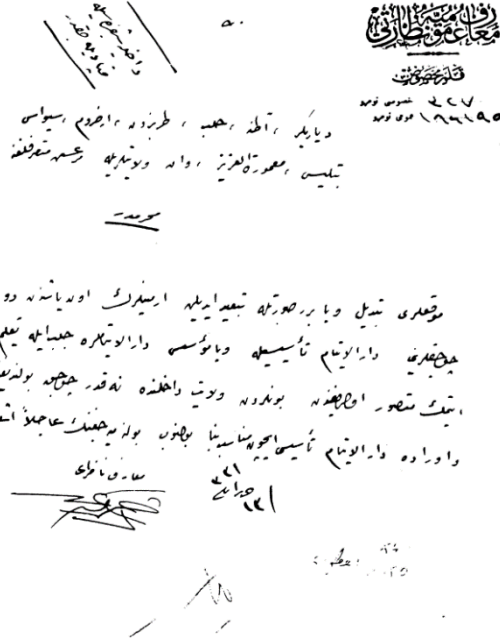 معارف عمومیه نظارتی
قلم مخصوص
٣٢٧ خصوصی نومرو
عمومی نومرو
دیاربکر ، آطنه ، حلب ، طربزون ، ارضروم ، سیواس
بتلیس ، معمورة العزیز ، وان ولایتلریله مرعش متصرفلغنه
محرمدر
موقعلری تبدیل ویا بر صورتله تبعید ایدیلن ارمنیلرك اون یاشندن دو
چوجقلرینی دار الایتام تأسیسیله ویا مؤسس دار الایتاملره جلب ایله تعلیم
ایتمك متصور اولدیغندن بونلردن ولایت داخلنده نه قدر چوجق بولندیغ
و اوراده دار الایتام تأسیسی ایچون مناسب بنا بولنوب بولنمدیغنك عاجلاً اشع
معارف ناظری
١٣ حزیران ٣٣١